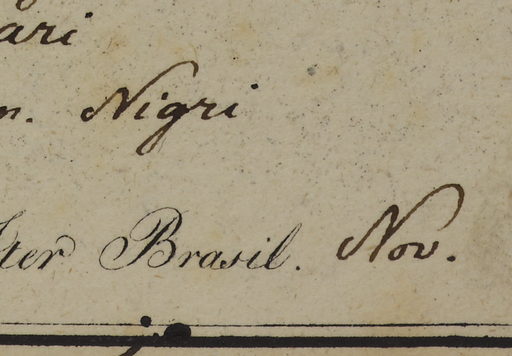 ari
n. Nigri
Iter Brasil. Nov.